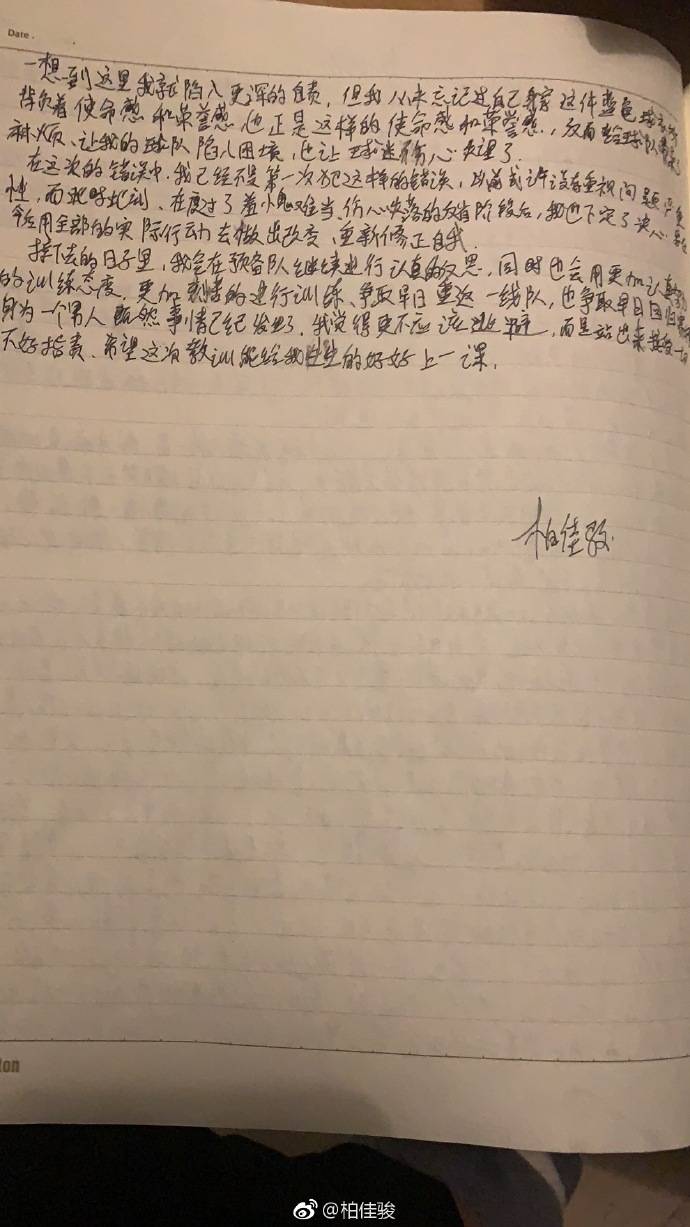 Date.
一想到这里我就陷入更深的自责，但我从未忘记过自己身穿这件蓝色球衣
背负着使命感和荣誉感，也正是这样的使命感和荣誉感，反而给球队带来
麻烦、让我的球队陷入困境，也让球迷伤心失望了
在这次的错误中，我已经不是第一次犯这样的错误，以前或许没有重视问题严重
性，而此时此刻、在度过了羞愧难当、伤心失落的阶段后，我也下定了决心
会用全部的实际行动去做出改变，重新修正自我．
接下去的日子里，我会在预备队继续进行认真的反思，同时也会用更加认真
的训练态度．更加的进行训练、争取早日重返一线队，也争取早日回归
身为一个男人既然事情已经发生了．我觉得更不应该逃避，而是站出来接受一切
不好指责、希望这次教训能给我生生的好好上一课．
柏佳骏
ton
@柏佳骏